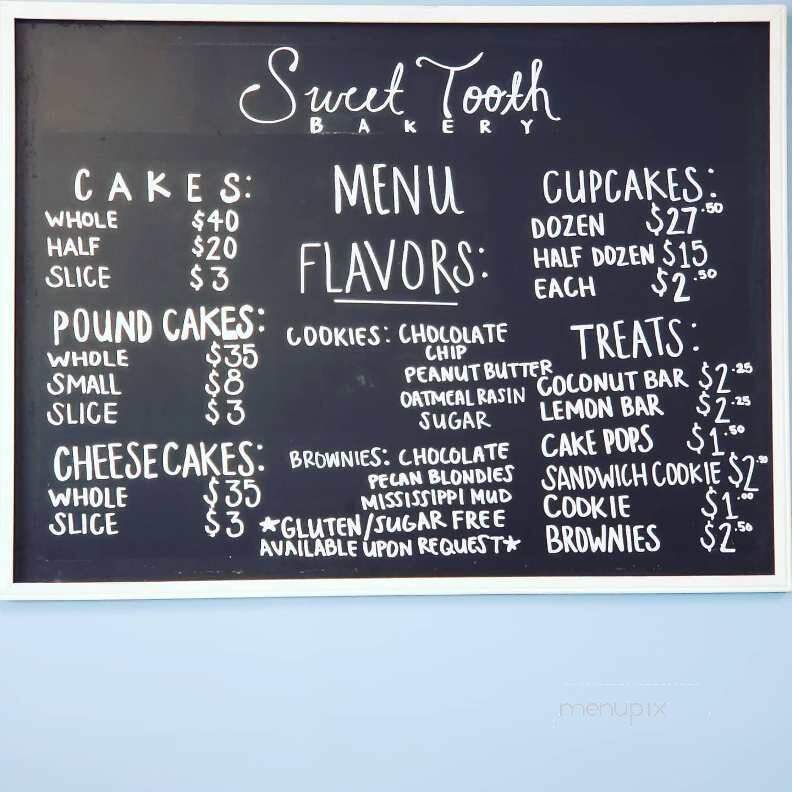 Sweet Tooth
BAKERY
CAKES:
WHOLE $40
HALF $20
SLICE $3
POUND CAKES:
WHOLE $35
SMALL $8
SLICE $3
CHEESECAKES:
WHOLE $35
SLICE $3
MENU
FLAVORS:
COOKIES: CHOCOLATE
CHIP
PEANUT BUTTER
OATMEAL RASIN
SUGAR
BROWNIES: CHOCOLATE
PECAN BLONDIES
MISSISSIPPI MUD
*GLUTEN/SUGAR FREE
AVAILABLE UPON REQUEST*
CUPCAKES:
DOZEN $27.50
HALF DOZEN $15
EACH $2.50
TREATS:
COCONUT BAR $2.25
LEMON BAR $2.25
CAKE POPS $1.50
SANDWICH COOKIE $2
COOKIE $1.00
BROWNIES $2.50
menupix